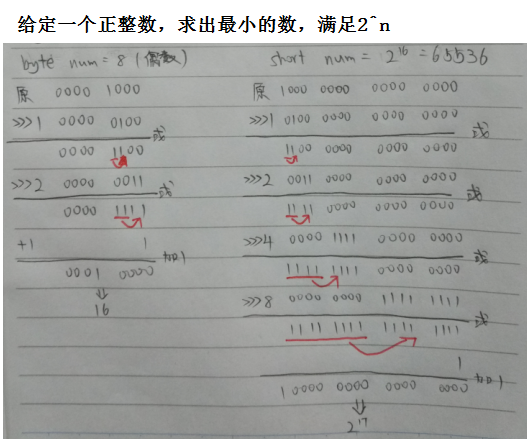 给定一个正整数，求出最小的数，满足2^n
byte num = 8 (偶数)
原 0000 1000
>>>1 0000 0100 或
0000 1100
>>>2 0000 0011 或
0000 1111
+1 1 加1
0001 0000
16
short num = 2^16 = 65536
原 1000 0000 0000 0000
>>>1 0100 0000 0000 0000 或
1100 0000 0000 0000
>>>2 0011 0000 0000 0000 或
1111 0000 0000 0000
>>>4 0000 1111 0000 0000 或
1111 1111 0000 0000
>>>8 0000 0000 1111 1111 或
1111 1111 1111 1111
1 加1
1 0000 0000 0000 0000
2^17